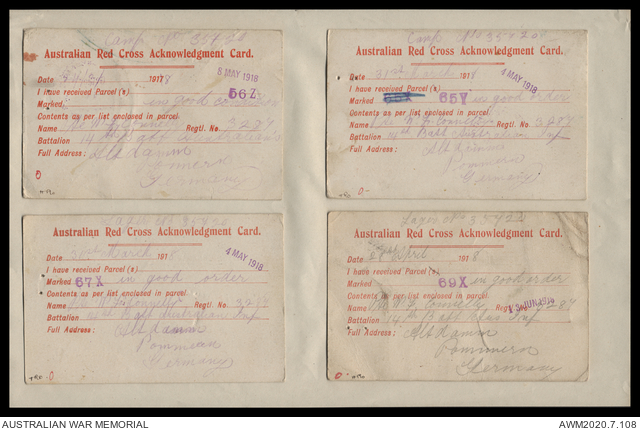 Camp No 35720
Australian Red Cross Acknowledgment Card.
8 MAY 1918
Date 1918
I have received Parcel(s)
Marked 56Z in good condition
Contents as per list enclosed in parcel.
Name Regtl. No. 3287
Battalion 14th Batt
Full Address: Alt damm
Pommern
Germany
Camp No 35720
Australian Red Cross Acknowledgment Card.
4 MAY 1918
Date 31st March 1918
I have received Parcel(s)
Marked 65Y in good order
Contents as per list enclosed in parcel.
Name Regtl. No. 3287
Battalion 14th Batt Australian Inf
Full Address: Alt damm
Pommern
Germany
Australian Red Cross Acknowledgment Card.
4 MAY 1918
Date March 1918
I have received Parcel(s)
Marked 67X in good order
Contents as per list enclosed in parcel.
Name Regtl. No. 3287
Battalion 14th Batt Australian Inf
Full Address: Alt damm
Pommern
Germany
Lager No 35720
Australian Red Cross Acknowledgment Card.
Date April 1918
I have received Parcel(s)
Marked 69X in good order
Contents as per list enclosed in parcel.
JUN 1918
Name Regtl. No. 3287
Battalion 14th Batt Aus Inf
Full Address: Alt damm
Pommern
Germany
AUSTRALIAN WAR MEMORIAL
AWM2020.7.108